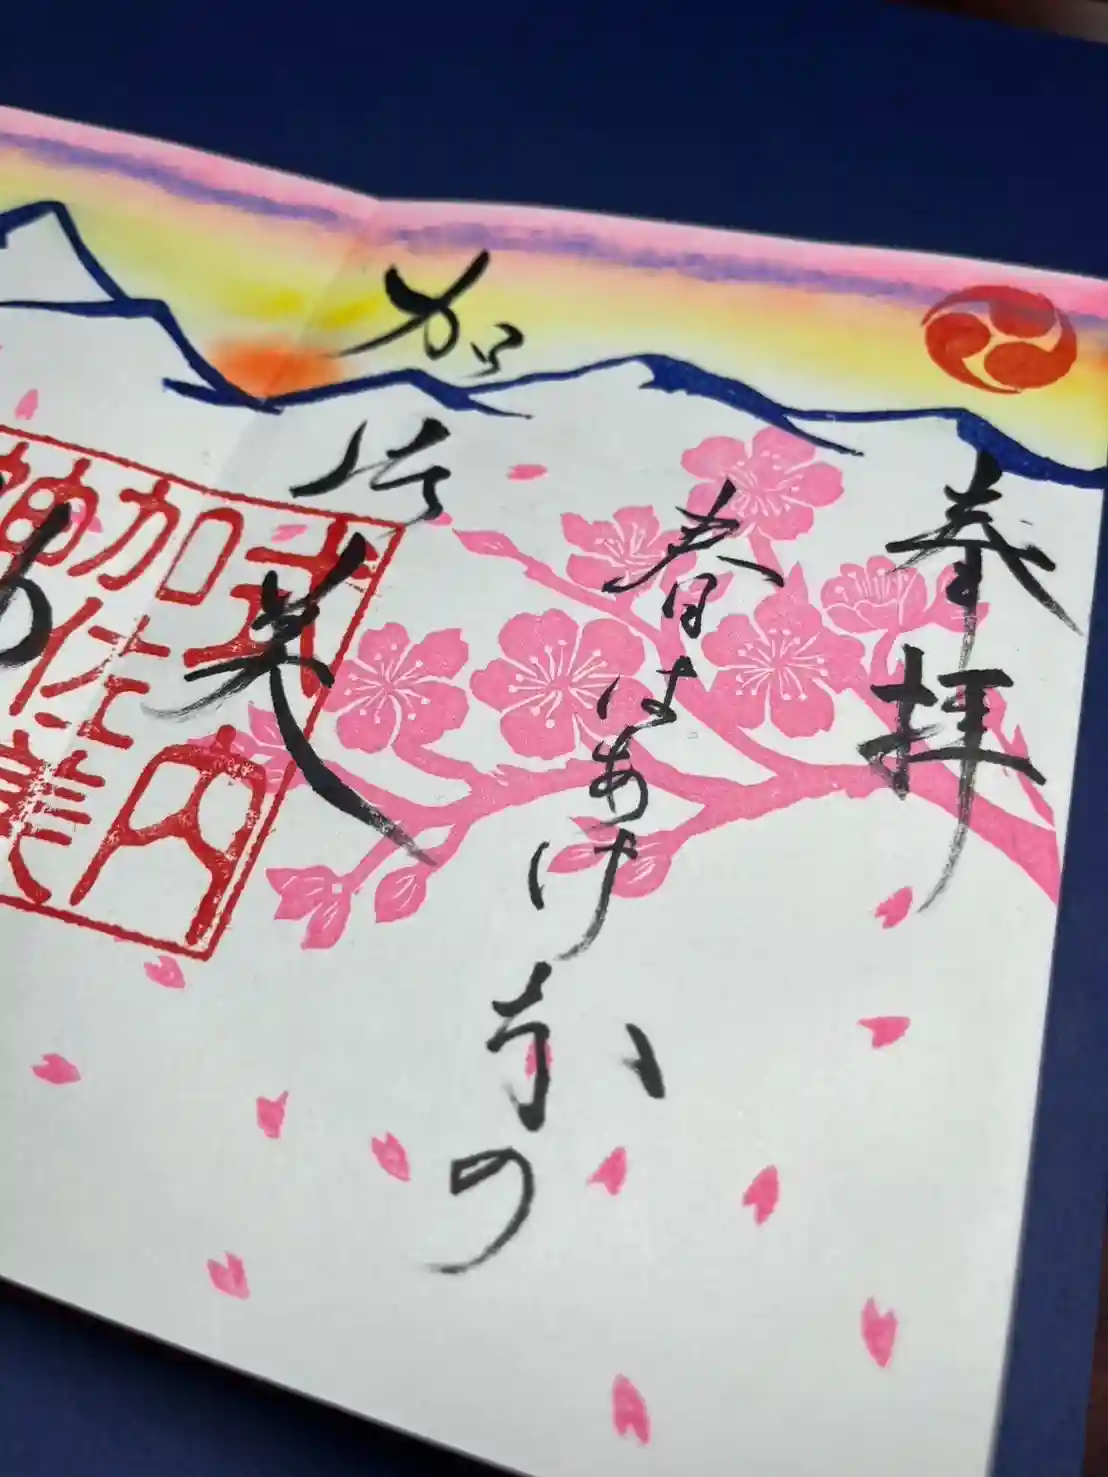 奉拝
春はあけぼの
加佐美
式内
加佐美
神